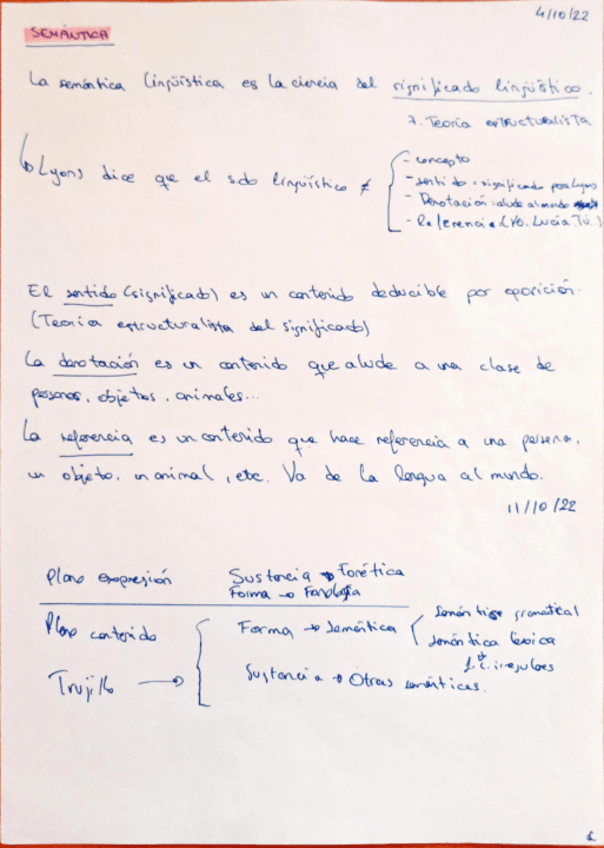 4/10/22
SEMÁNTICA
La semántica lingüística es la ciencia del significado lingüístico.
Teoría estructuralista
Lyons dice que el sdo lingüístico ≠
- concepto
- sentido = significado para Lyons
- Denotación: alude al mundo
- Referencia (Yo. Lucía, Tú..)
El sentido (significado) es un contenido deducible por oposición.
(Teoría estructuralista del significado)
La denotación es un contenido que alude a una clase de
personas, objetos, animales...
La referencia es un contenido que hace referencia a una persona,
un objeto, un animal, etc. Va de la lengua al mundo.
11/10/22
Plano expresión
Sustancia → Fonética
Forma → Fonología
Plano contenido
Forma → Semántica
Semántica gramatical
Semántica léxica
irregulares
Trujillo →
Sustancia → Otras semánticas.
1